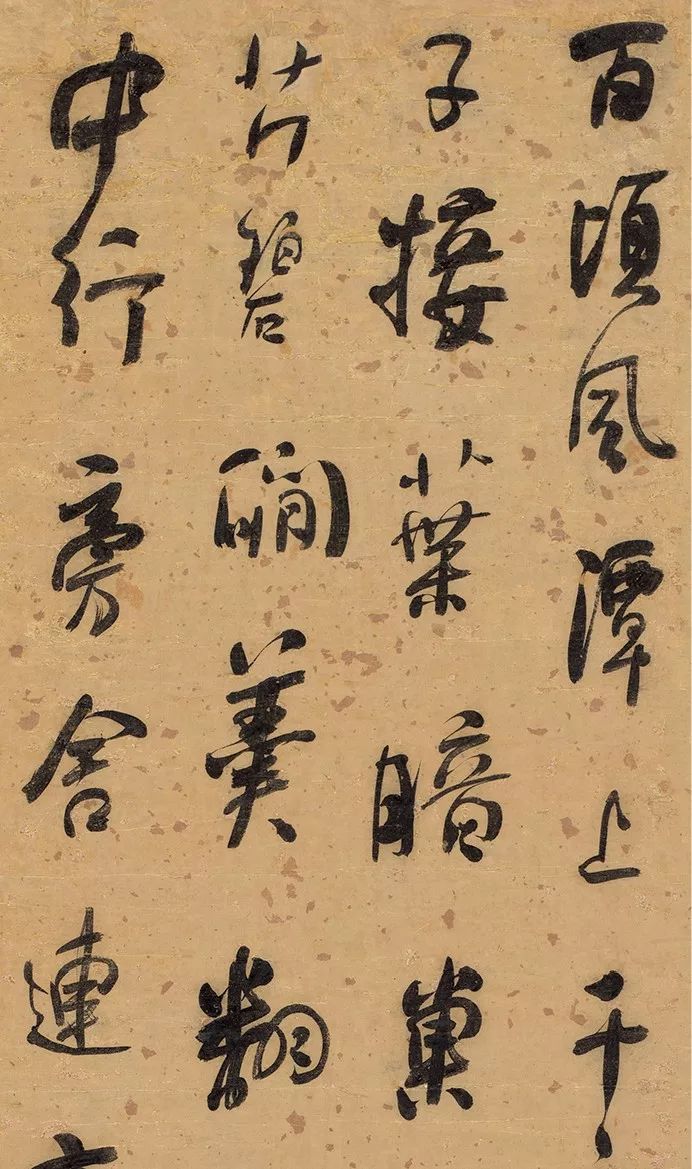 百頃風潭上千
子接葉暗巢
芹碧澗羹翻
中行旁舍連